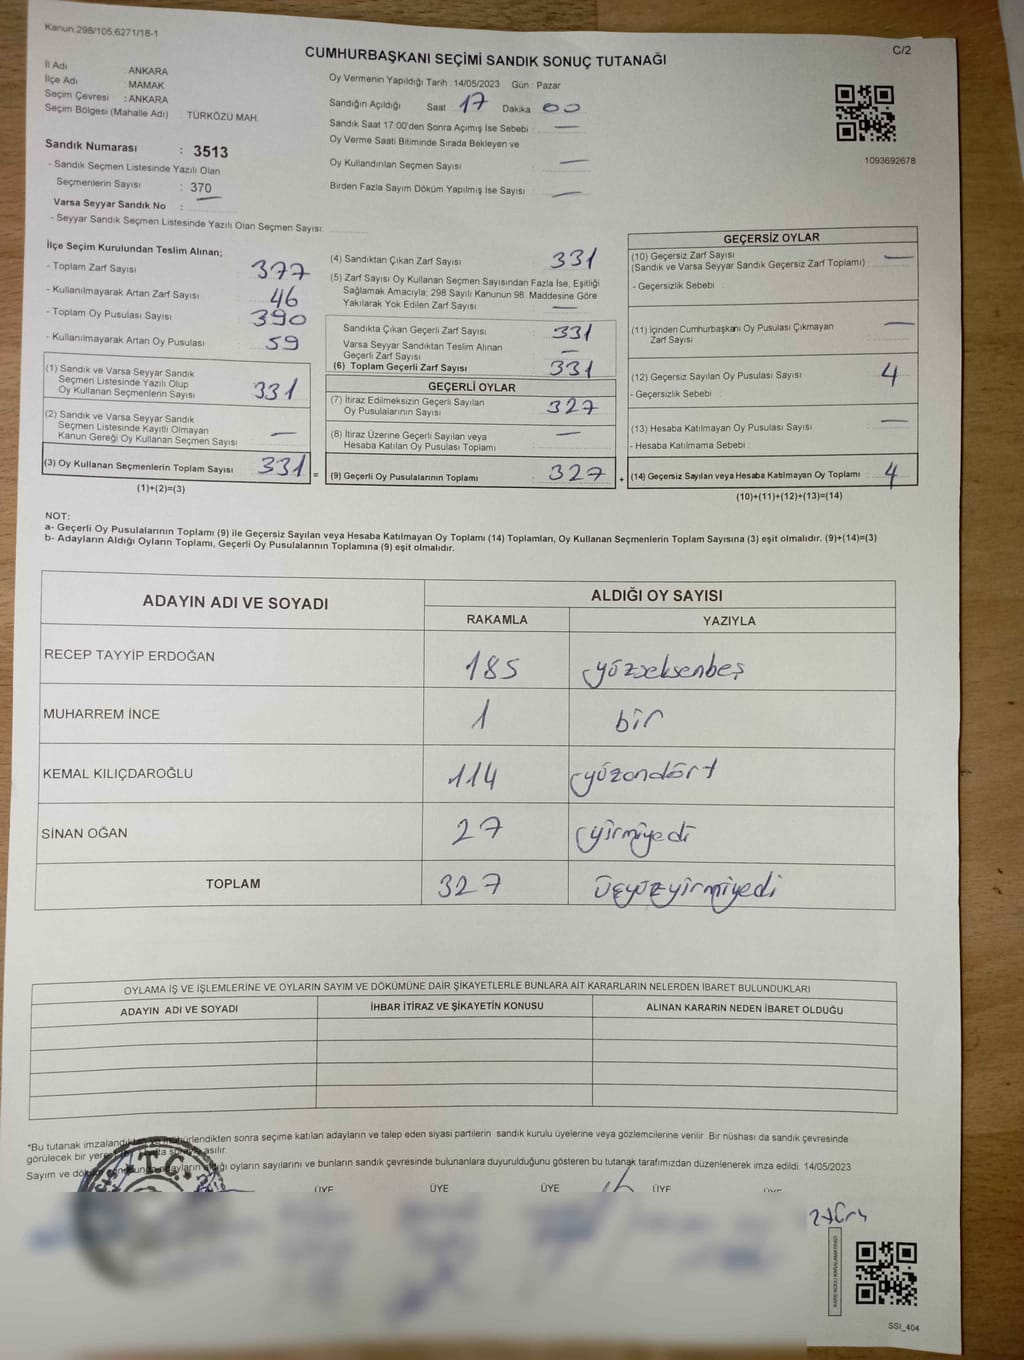 Kanun.298/105,6271/18-1
C/2
CUMHURBAŞKANI SEÇİMİ SANDIK SONUÇ TUTANAĞI
İl Adı ANKARA
İlçe Adı : MAMAK
Seçim Çevresi : ANKARA
Seçim Bölgesi (Mahalle Adı) : TÜRKÖZÜ MAH.
Sandık Numarası : 3513
- Sandık Seçmen Listesinde Yazılı Olan
Seçmenlerin Sayısı : 370
Varsa Seyyar Sandık No :
- Seyyar Sandık Seçmen Listesinde Yazılı Olan Seçmen Sayısı:
Oy Vermenin Yapıldığı Tarih : 14/05/2023 Gün : Pazar
Sandığın Açıldığı Saat : 17 Dakika 00
Sandık Saat 17:00'den Sonra Açımış İse Sebebi : —
Oy Verme Saati Bitiminde Sırada Bekleyen ve
Oy Kullandırılan Seçmen Sayısı : —
Birden Fazla Sayım Döküm Yapılmış İse Sayısı : —
1093692678
İlçe Seçim Kurulundan Teslim Alınan;
- Toplam Zarf Sayısı : 377
- Kullanılmayarak Artan Zarf Sayısı : 46
- Toplam Oy Pusulası Sayısı : 390
- Kullanılmayarak Artan Oy Pusulası : 59
(1) Sandık ve Varsa Seyyar Sandık
Seçmen Listesinde Yazılı Olup
Oy Kullanan Seçmenlerin Sayısı : 331
(2) Sandık ve Varsa Seyyar Sandık
Seçmen Listesinde Kayıtlı Olmayan
Kanun Gereği Oy Kullanan Seçmen Sayısı : —
(3) Oy Kullanan Seçmenlerin Toplam Sayısı : 331 =
(1)+(2)=(3)
(4) Sandıktan Çıkan Zarf Sayısı : 331
(5) Zarf Sayısı Oy Kullanan Seçmen Sayısından Fazla İse, Eşitliği
Sağlamak Amacıyla; 298 Sayılı Kanunun 98. Maddesine Göre
Yakılarak Yok Edilen Zarf Sayısı : —
Sandıkta Çıkan Geçerli Zarf Sayısı : 331
Varsa Seyyar Sandıktan Teslim Alınan
Geçerli Zarf Sayısı : —
(6) Toplam Geçerli Zarf Sayısı : 331
GEÇERLİ OYLAR
(7) İtiraz Edilmeksizin Geçerli Sayılan
Oy Pusulalarının Sayısı : 327
(8) İtiraz Üzerine Geçerli Sayılan veya
Hesaba Katılan Oy Pusulası Toplamı : —
(9) Geçerli Oy Pusulalarının Toplamı : 327 +
GEÇERSİZ OYLAR
(10) Geçersiz Zarf Sayısı
(Sandık ve Varsa Seyyar Sandık Geçersiz Zarf Toplamı) : —
- Geçersizlik Sebebi :
(11) İçinden Cumhurbaşkanı Oy Pusulası Çıkmayan
Zarf Sayısı : —
(12) Geçersiz Sayılan Oy Pusulası Sayısı : 4
- Geçersizlik Sebebi :
(13) Hesaba Katılmayan Oy Pusulası Sayısı : —
- Hesaba Katılmama Sebebi :
(14) Geçersiz Sayılan veya Hesaba Katılmayan Oy Toplamı : 4
(10)+(11)+(12)+(13)=(14)
NOT:
a- Geçerli Oy Pusulalarının Toplamı (9) ile Geçersiz Sayılan veya Hesaba Katılmayan Oy Toplamı (14) Toplamları, Oy Kullanan Seçmenlerin Toplam Sayısına (3) eşit olmalıdır. (9)+(14)=(3)
b- Adayların Aldığı Oyların Toplamı, Geçerli Oy Pusulalarının Toplamına (9) eşit olmalıdır.
ADAYIN ADI VE SOYADI ALDIĞI OY SAYISI
RAKAMLA YAZIYLA
RECEP TAYYİP ERDOĞAN 185 yüzseksenbeş
MUHARREM İNCE 1 bir
KEMAL KILIÇDAROĞLU 114 yüzondört
SİNAN OĞAN 27 yirmiyedi
TOPLAM 327 üçyüzyirmiyedi
OYLAMA İŞ VE İŞLEMLERİNE VE OYLARIN SAYIM VE DÖKÜMÜNE DAİR ŞİKAYETLERLE BUNLARA AİT KARARLARIN NELERDEN İBARET BULUNDUKLARI
ADAYIN ADI VE SOYADI İHBAR İTİRAZ VE ŞİKAYETİN KONUSU ALINAN KARARIN NEDEN İBARET OLDUĞU
*Bu tutanak imzalandıktan ve mühürlendikten sonra seçime katılan adayların ve talep eden siyasi partilerin sandık kurulu üyelerine veya gözlemcilerine verilir Bir nüshası da sandık çevresinde
görülecek bir yere asılır.
Sayım ve döküm adayların aldığı oyların sayılarını ve bunların sandık çevresinde bulunanlara duyurulduğunu gösteren bu tutanak tarafımızdan düzenlenerek imza edildi. 14/05/2023
T.C.
ÜYE ÜYE ÜYE ÜYE
SSI_404